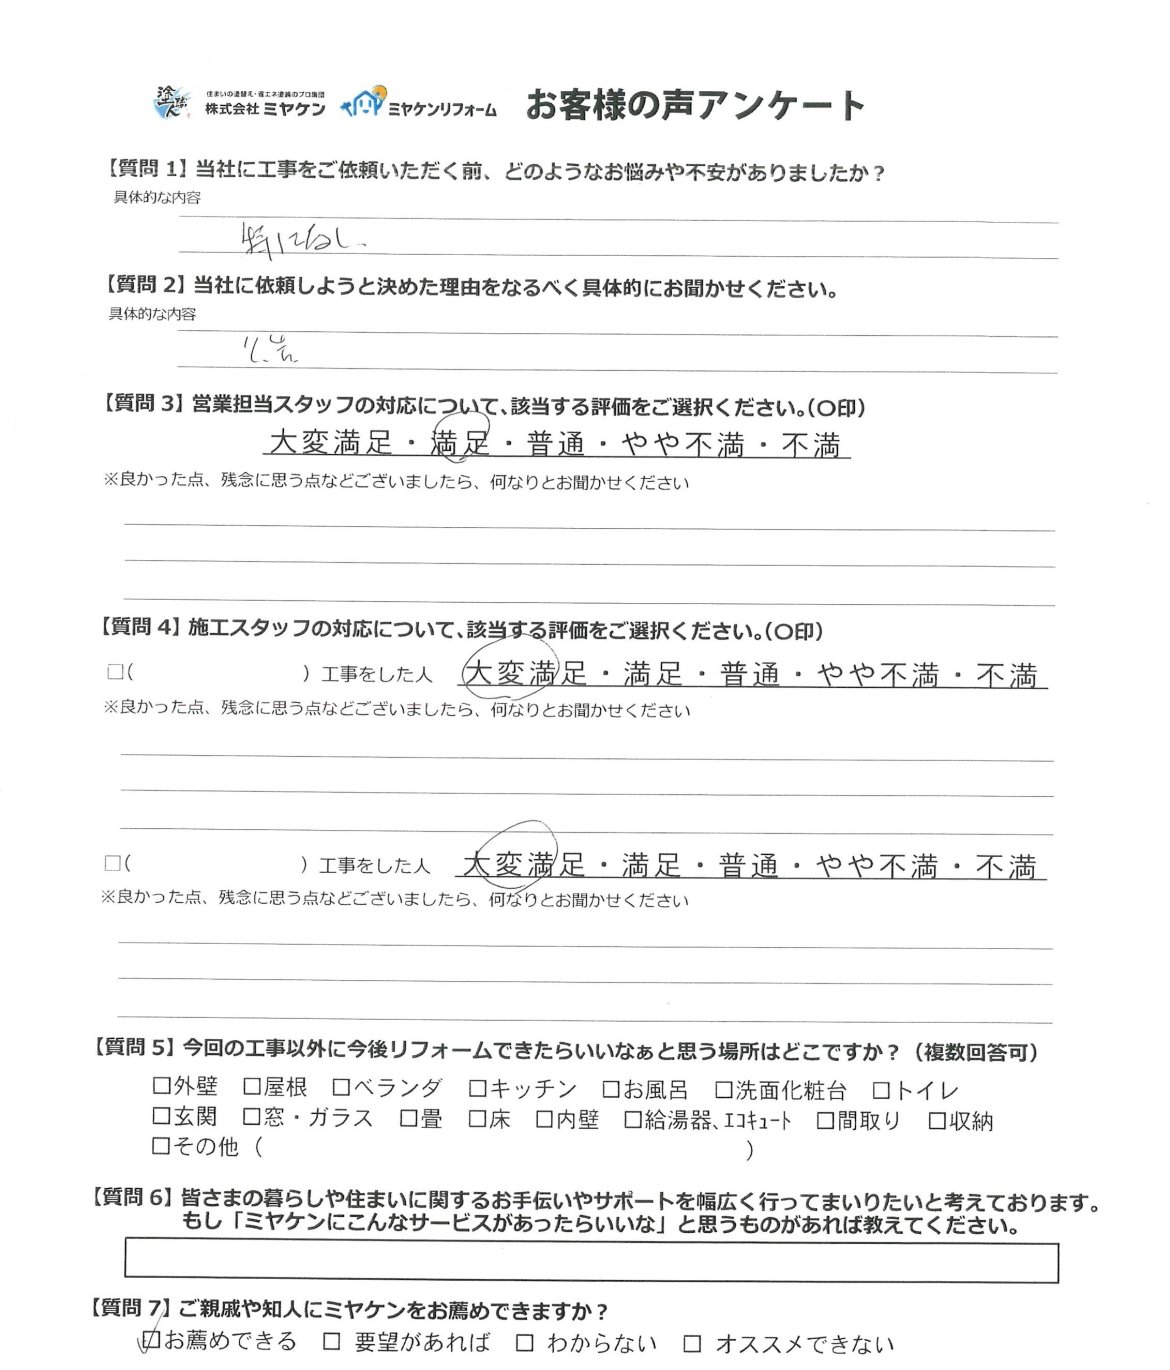 塗職人
住まいの塗替え・省エネ塗装のプロ集団
株式会社 ミヤケン
ミヤケンリフォーム
お客様の声アンケート
【質問 1】当社に工事をご依頼いただく前、どのようなお悩みや不安がありましたか？
具体的な内容
特になし.
【質問 2】当社に依頼しようと決めた理由をなるべく具体的にお聞かせください。
具体的な内容
【質問 3】営業担当スタッフの対応について、該当する評価をご選択ください。（○印）
大変満足・満足・普通・やや不満・不満
※良かった点、残念に思う点などございましたら、何なりとお聞かせください
【質問 4】施工スタッフの対応について、該当する評価をご選択ください。（○印）
□（　　　　　　　　　）工事をした人　大変満足・満足・普通・やや不満・不満
※良かった点、残念に思う点などございましたら、何なりとお聞かせください
□（　　　　　　　　　）工事をした人　大変満足・満足・普通・やや不満・不満
※良かった点、残念に思う点などございましたら、何なりとお聞かせください
【質問 5】今回の工事以外に今後リフォームできたらいいなぁと思う場所はどこですか？（複数回答可）
□外壁　□屋根　□ベランダ　□キッチン　□お風呂　□洗面化粧台　□トイレ
□玄関　□窓・ガラス　□畳　□床　□内壁　□給湯器、ｴｺｷｭｰﾄ　□間取り　□収納
□その他（　　　　　　　　　　　　　　　　　　　　　　）
【質問 6】皆さまの暮らしや住まいに関するお手伝いやサポートを幅広く行ってまいりたいと考えております。
もし「ミヤケンにこんなサービスがあったらいいな」と思うものがあれば教えてください。
【質問 7】ご親戚や知人にミヤケンをお薦めできますか？
☑お薦めできる　□ 要望があれば　□ わからない　□ オススメできない